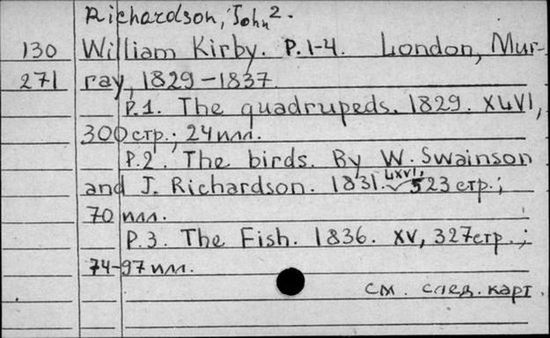 Richardson, John 2.
130 William Kirby. P.1-4. London, Mur-
271 ray, 1829-1837
P.1. The quadrupeds. 1829. XLVI,
300 стр.; 24 илл.
P.2. The birds. By W. Swainson
and J. Richardson. 1831. LXVI, 523 стр.;
70 илл.
P.3. The Fish. 1836. XV, 327 стр.;
74-97 илл.
см. след. карт.